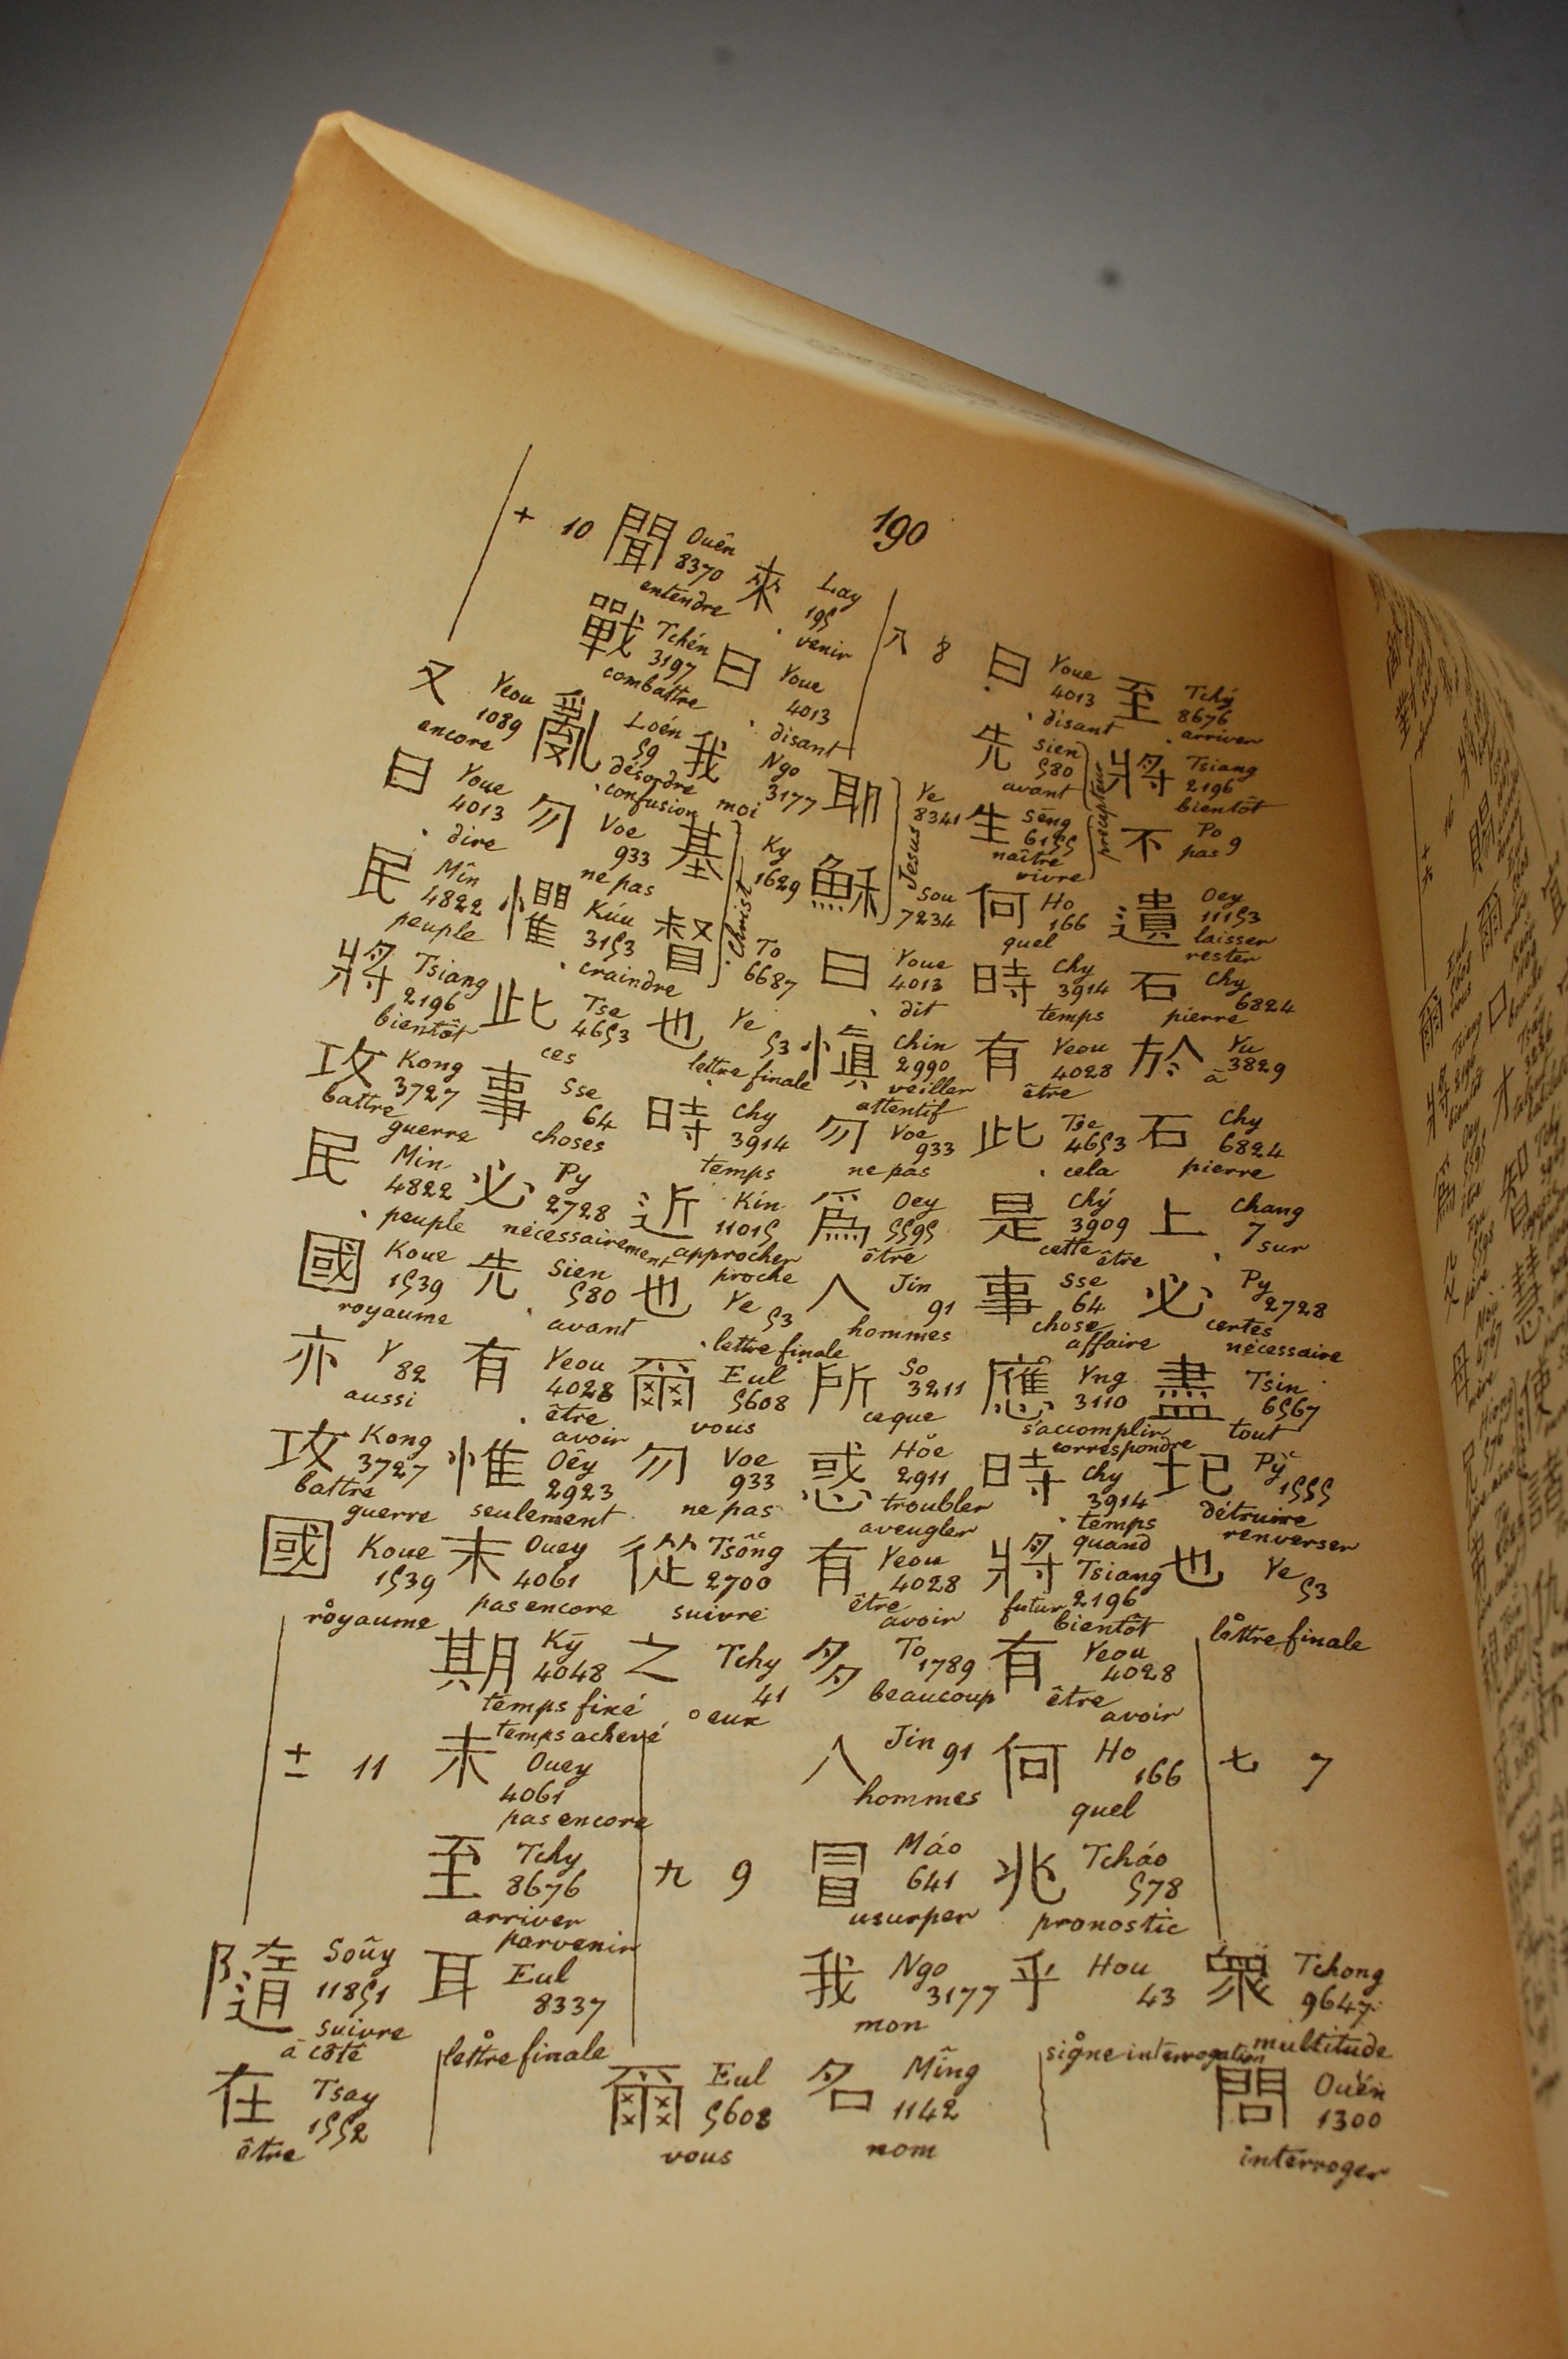 190
至 Tchý 8676 arriver
將 Tsiang 2196 bientôt
不 Po 9 pas
遺 Oey 11153 laisser rester
石 Chy 6824 pierre
於 Yu 3829 à
石 Chy 6824 pierre
上 Chang 7 sur
必 Py 2728 certes nécessaire
盡 Tsin 6567 tout
圮 Pỳ 1555 détruire renverser
也 Ye 53 lettre finale
七 7
眾 Tchong 9647 multitude
問 Ouén 1300 interroger
曰 Youe 4013 disant
先 Sien 580 avant
生 Sēng 6155 naître vivre
précepteur
何 Ho 166 quel
時 Chy 3914 temps
有 Yeou 4028 être
此 Tse 4653 cela
是 Chý 3909 cette être
事 Sse 64 chose affaire
應 Yng 3110 s'accomplir correspondre
時 Chy 3914 temps quand
將 Tsiang 2196 futur bientôt
有 Yeou 4028 être avoir
何 Ho 166 quel
兆 Tcháo 578 pronostic
乎 Hou 43 signe interrogation
八 8
耶 Ye 8341
穌 Sou 7234
Jesus
曰 Youe 4013 dit
慎 Chin 2990 veiller attentif
勿 Voe 933 ne pas
爲 Oey 5595 être
人 Jin 91 hommes
所 So 3211 ce que
惑 Hŏe 2911 troubler aveugler
有 Yeou 4028 être avoir
多 To 1789 beaucoup
人 Jin 91 hommes
冒 Máo 641 usurper
我 Ngo 3177 mon
名 Mîng 1142 nom
來 Lay 195 venir
曰 Youe 4013 disant
我 Ngo 3177 moi
基 Ky 1629
督 To 6687
Christ
也 Ye 53 lettre finale
時 Chy 3914 temps
近 Kín 11015 approcher proche
也 Ye 53 lettre finale
爾 Eul 5608 vous
勿 Voe 933 ne pas
從 Tsông 2700 suivre
之 Tchy 41 eux
九 9
爾 Eul 5608 vous
聞 Ouên 8370 entendre
戰 Tchén 3197 combattre
亂 Loén 59 désordre confusion
勿 Voe 933 ne pas
懼 Kúu 3153 craindre
此 Tse 4653 ces
事 Sse 64 choses
必 Py 2728 nécessairement
先 Sien 580 avant
有 Yeou 4028 être avoir
惟 Oêy 2923 seulement
未 Ouey 4061 pas encore
期 Kȳ 4048 temps fixé temps achevé
未 Ouey 4061 pas encore
至 Tchy 8676 arriver parvenir
耳 Eul 8337 lettre finale
十 10
又 Yeou 1089 encore
曰 Youe 4013 dire
民 Mîn 4822 peuple
將 Tsiang 2196 bientôt
攻 Kong 3727 battre guerre
民 Min 4822 peuple
國 Koue 1539 royaume
亦 Y 82 aussi
攻 Kong 3727 battre guerre
國 Koue 1539 royaume
十一 11
隨 Soûy 11851 suivre à côté
在 Tsay 1552 être